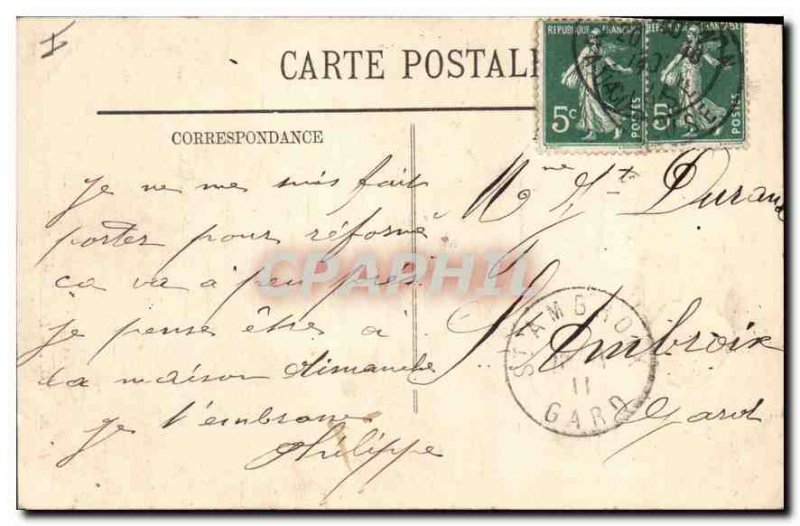 CARTE POSTALE
RÉPUBLIQUE FRANÇAISE
5c
POSTES
RÉPUBLIQUE FRANÇAISE
5c
POSTES
CORRESPONDANCE
Je ne me suis fait
porter pour réformé
ça va à peu près
je pense être à
la maison dimanche
je t'embrasse
Philippe
Mme Durand
St Ambroix
Gard
ST AMBROIX
11
GARD
CPARHIL